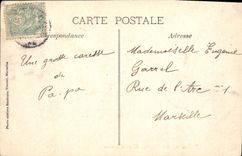 CARTE POSTALE
Correspondance
Adresse
Une grosse caresse
de
Pa-pa
Mademoiselle Eugénie
Garrel
Rue de l'Arc - 1
Marseille